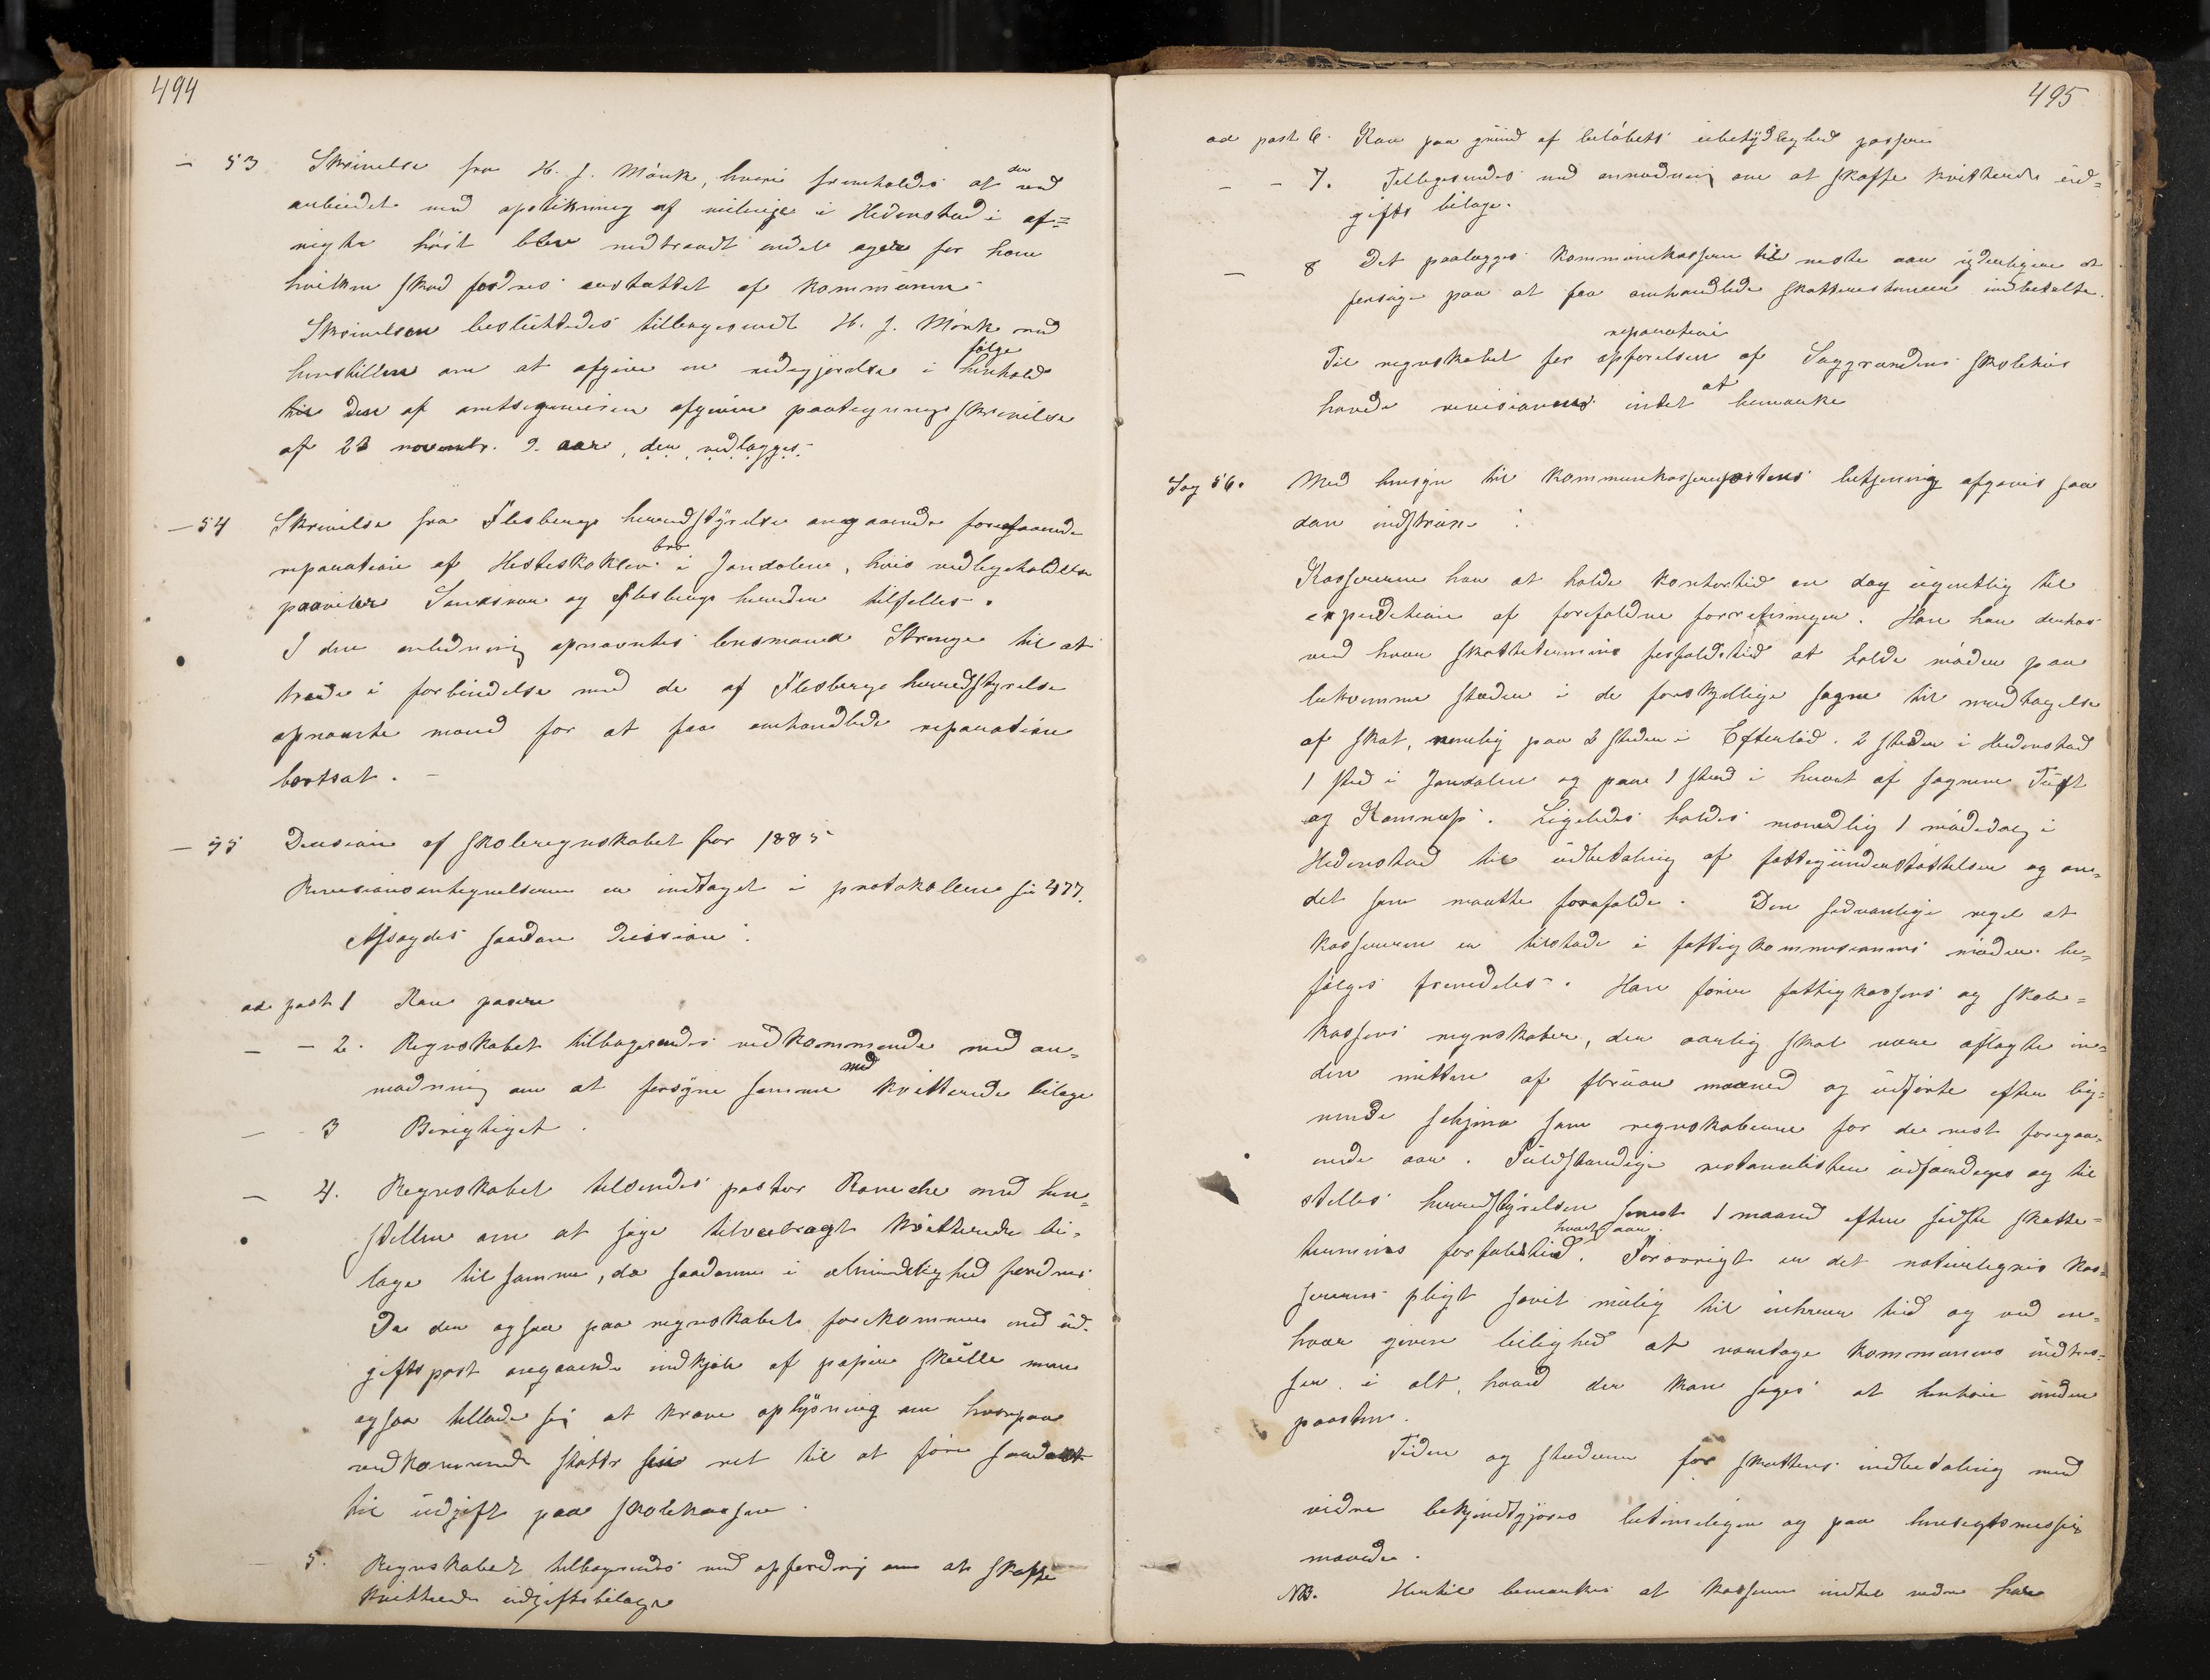 494
— 53 Skrivelse fra H. J. Mørk, hvori fremholdes at der ved
arbeidet med opstikning af nilveije i Hedenstad i af=
vigte høst blev nedtraadt endel ager for ham
hvilken skad fordres erstattet af kommunen
Skrivelsen besluttedes tilbagesendt H. J. Mørk med
henstillen om at afgive en redegjørelse i følge
til den af amtsagronomen afgivne paategningsskrivelse
af 23 novembr. d. aar, der vedlægges.
— 54 Skrivelse fra Flesbergs herredstyrelse angaaende forefaaende
reparation af Hesteskoklev bro i Jondalen, hvis vedligeholdelse
paaviler Sandsvær og Flesbergs herreder tilfelles.
I den anledning opnævntes lensmand Strenge til at
træde i forbindelse med de af Flesbergs herredstyrelse
opnævnte mænd for at faa omhandlede reparation
bortsat. —
— 55 Decision af skoleregnskabet for 1885
Revisionsantegnelserne er indtaget i protokollens sid 477.
Afsagdes saadan decision:
ad post 1 Kan passere
— — 2. Regnskabet tilbagesendes vedkommende med an=
modning om at forsyne samme med kvitterede bilage
— - 3 Berigtiget.
— 4. Regnskabet tilsendes pastor Roneche med hen=
stillen om at søge tilveiebragt kvitterede bi=
lage til samme, da saadanne i almindelighed fordres
Da der ogsaa paa regnskabet forekommer en ud=
giftspost angaaende indkjøb af papir skulle man
ogsaa tillade sig at kræve oplysning om hvorpaa
vedkommende støtter sin ret til at føre saadant
til udgift paa skolekassen.
5. Regnskabet tilbagesendes med opfordring om at skaffe
kvitterede udgiftsbilage
495
ad post 6. Kan paa grund af beløbets ubetydelighed passere
— — 7. Tilbagesendes med anmodning om at skaffe kvitterede ud=
gifts bilage.
— 8 Det paalægges kommunekasseren til næste aar yderligere at
forsøge paa at faa omhandlede skatterestancer indbetalte.
Til regnskabet for opførelsen reparation af Saggrendens skolehus
havde revisionen intet at bemærke
Sag 56. Med hensyn til kommunekasserpostens betjening afgaves saa
dan instrux:
Kassereren har at holde kontortid en dag ugentlig til
expedition af forefaldne forretninger. Han har derhos
ved hver skattetermins forfaldstid at holde møder paa
bekvemme steder i de forskjellige sogne til modtagelse
af skat, nemlig paa 2 steder i Efteløt. 2 steder i Hedenstad
1 sted i Jondalen og paa 1 sted i hvert af sognene Tuft
og Komnes. Ligeledes holdes maanedlig 1 mødedag i
Hedenstad til udbetaling af fattigunderstøttelser og an=
det som maatte forefalde. Den sedvanlige regel at
kassereren er tilstede i fattigkommissionens møder be=
følges fremdeles. Han fører fattigkassens og skole=
kassens regnskaber, der aarlig skal være aflagte in=
den midten af februar maaned og udførte efter lig=
nende schema som regnskaberne for de næst foregaa=
ende aar. Fuldstændige restancelister udfærdiges og til
stilles herredstyrelsen senest 1 maaned efter sidste skatte=
termins forfaldstid hvert aar. Forøvrigt er det naturligvis kas=
sererens pligt saavit mulig til enhver tid og ved en=
hver given leilighed at varetage kommunens interes=
ser i alt, hvad der kan siges at henhøre under
posten.
Tiden og stederne for skattens indbetaling med
videre bekjendtgjøres betimeligen og paa hensigtsmessig
maade.
NB. Hertil bemærkes at kassereren indtil videre har